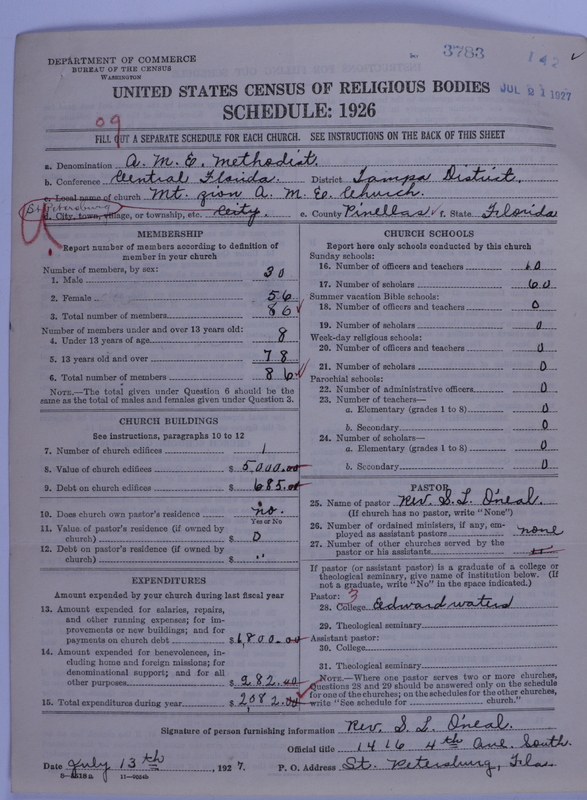 3783
142
JUL 21 1927
DEPARTMENT OF COMMERCE
BUREAU OF THE CENSUS
WASHINGTON
UNITED STATES CENSUS OF RELIGIOUS BODIES
SCHEDULE: 1926
09
FILL OUT A SEPARATE SCHEDULE FOR EACH CHURCH. SEE INSTRUCTIONS ON THE BACK OF THIS SHEET
a. Denomination A. M. E. Methodist.
b. Conference Central Florida. District Tampa District.
c. Local name of church Mt. Zion A. M. E. Church.
St Petersburg
d. City, town, village, or township, etc. City. e. County Pinellas f. State Florida
MEMBERSHIP
Report number of members according to definition of member in your church
Number of members, by sex:
1. Male 30
2. Female 56
3. Total number of members 86
Number of members under and over 13 years old:
4. Under 13 years of age 8
5. 13 years old and over 78
6. Total number of members 86
NOTE.—The total given under Question 6 should be
same as the total of males and females given under Question 3.
CHURCH BUILDINGS
See instructions, paragraphs 10 to 12
7. Number of church edifices 1
8. Value of church edifices $ 5,000.00
9. Debt on church edifices $ 685.00
10. Does church own pastor's residence? no.
Yes or No
11. Value of pastor's residence (if owned by
church) $ 0
12. Debt on pastor's residence (if owned by
church) $ "
EXPENDITURES
Amount expended by your church during last fiscal year
13. Amount expended for salaries, repairs,
and other running expenses; for im-
provements or new buildings; and for
payments on church debt $ 1,800.00
14. Amount expended for benevolences, in-
cluding home and foreign missions; for
denominational support; and for all
other purposes $ 282.00
15. Total expenditures during year $ 2,082.00
CHURCH SCHOOLS
Report here only schools conducted by this church
Sunday schools:
16. Number of officers and teachers 10
17. Number of scholars 60
Summer vacation Bible schools:
18. Number of officers and teachers 0
19. Number of scholars 0
Week-day religious schools:
20. Number of officers and teachers 0
21. Number of scholars 0
Parochial schools:
22. Number of administrative officers 0
23. Number of teachers—
a. Elementary (grades 1 to 8) 0
b. Secondary 0
24. Number of scholars—
a. Elementary (grades 1 to 8) 0
b. Secondary 0
PASTOR
25. Name of pastor Rev. S. L. O'neal.
(If church has no pastor, write "None")
26. Number of ordained ministers, if any, em-
ployed as assistant pastors none
27. Number of other churches served by the
pastor or his assistants "
If pastor (or assistant pastor) is a graduate of a college or
theological seminary, give name of institution below. (If
not a graduate, write "No" in the space indicated.)
Pastor: 3
28. College Edward waters
29. Theological seminary
Assistant pastor:
30. College
31. Theological seminary
NOTE.—Where one pastor serves two or more churches,
Questions 28 and 29 should be answered only on the schedule
for one of the churches; on the schedules for the other churches,
write "See schedule for church."
Signature of person furnishing information Rev. S. L. O'neal.
Official title 1416 4th Ave. South.
Date July 13th, 1927. P. O. Address St. Petersburg, Fla.
11—9024b